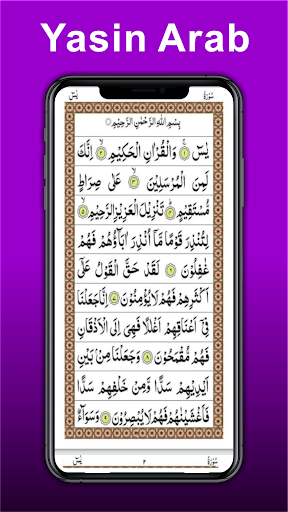 Yasin Arab
يٰسٓ
سُوْرَةُ
بِسْمِ اللهِ الرَّحْمٰنِ الرَّحِيْمِ
يٰسٓ ۝١ وَالْقُرْاٰنِ الْحَكِيْمِ ۝٢ اِنَّكَ
لَمِنَ الْمُرْسَلِيْنَ ۝٣ عَلٰى صِرَاطٍ
مُّسْتَقِيْمٍ ۝٤ تَنْزِيْلَ الْعَزِيْزِ الرَّحِيْمِ ۝٥
لِتُنْذِرَ قَوْمًا مَّاۤ اُنْذِرَ اٰبَاۤؤُهُمْ فَهُمْ
غٰفِلُوْنَ ۝٦ لَقَدْ حَقَّ الْقَوْلُ عَلٰۤى
اَكْثَرِهِمْ فَهُمْ لَا يُؤْمِنُوْنَ ۝٧ اِنَّا جَعَلْنَا
فِيْۤ اَعْنَاقِهِمْ اَغْلٰلًا فَهِيَ اِلَى الْاَذْقَانِ
فَهُمْ مُّقْمَحُوْنَ ۝٨ وَجَعَلْنَا مِنْۢ بَيْنِ
اَيْدِيْهِمْ سَدًّا وَّمِنْ خَلْفِهِمْ سَدًّا
فَاَغْشَيْنٰهُمْ فَهُمْ لَا يُبْصِرُوْنَ ۝٩ وَسَوَآءٌ
يٰسٓ
٢
سُوْرَةُ